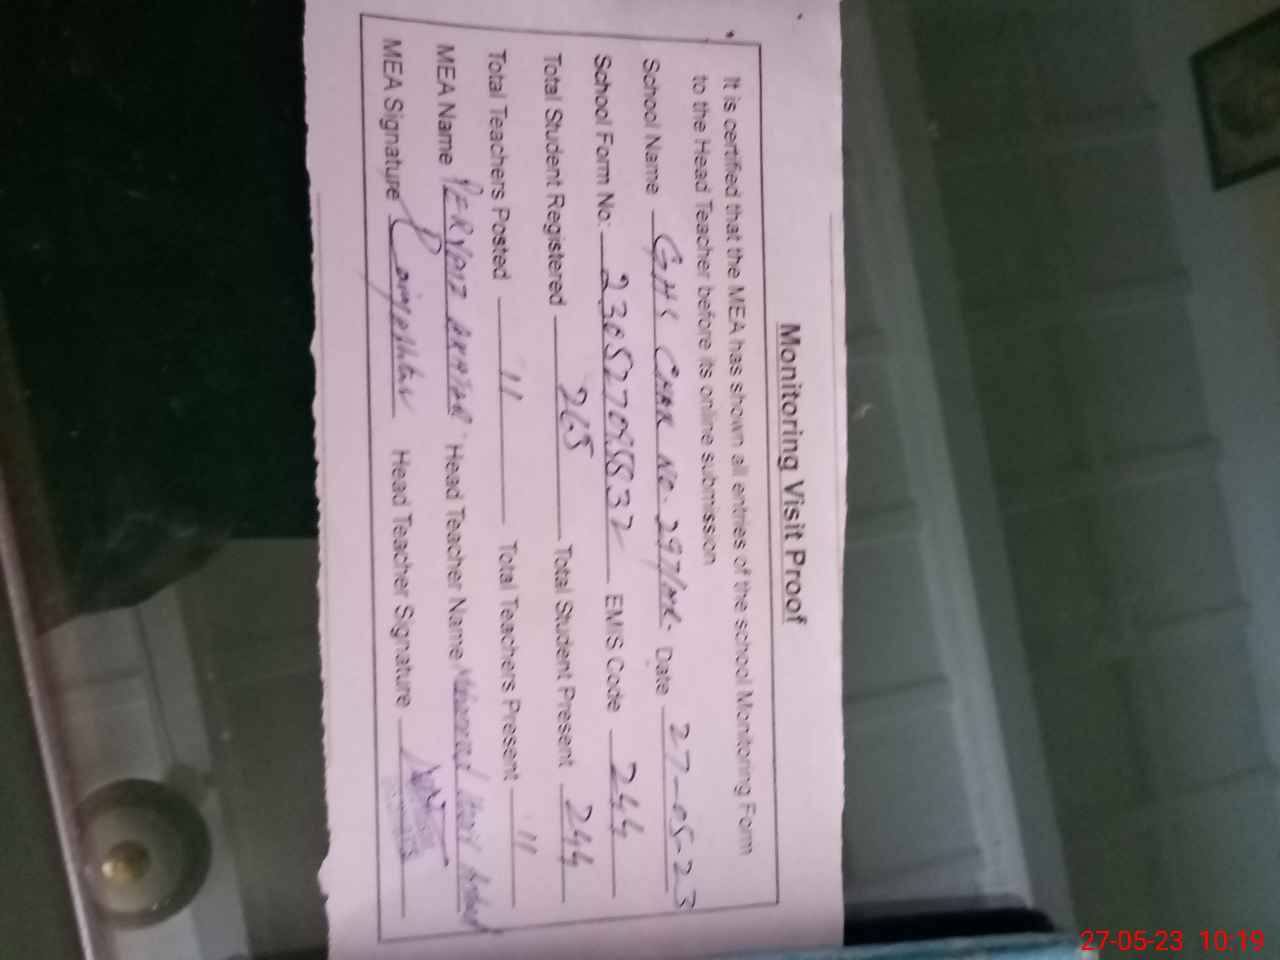 Monitoring Visit Proof
It is certified that the MEA has shown all entries of the school Monitoring Form
to the Head Teacher before its online submission
School Name GHS CHAK NO. 297/HR Date 27-05-23
School Form No: EMIS Code 244
Total Student Registered 265 Total Student Present 244
Total Teachers Posted 11 Total Teachers Present 11
MEA Name Head Teacher Name
MEA Signature Head Teacher Signature
27-05-23 10:19